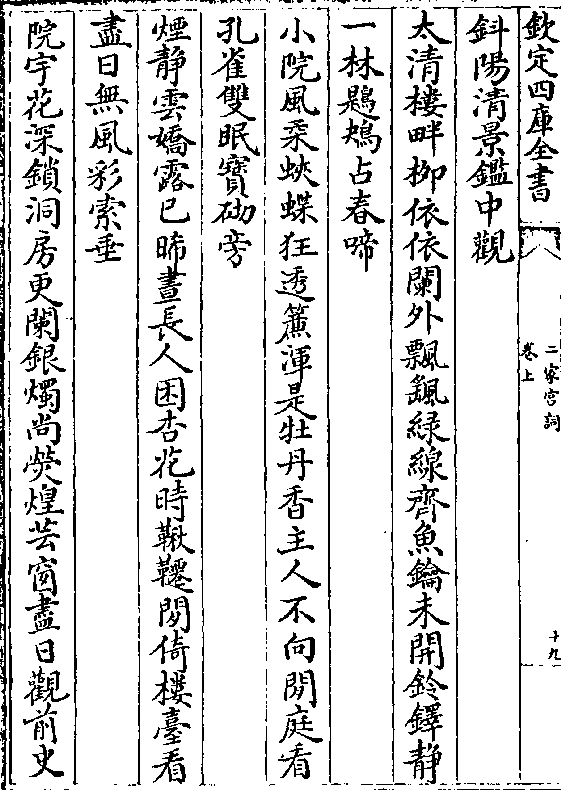 欽定四庫全書
二家宮詞
卷上
十九
斜陽清景鑑中觀
太清樓畔栁依依闌外飄颻緑線齊魚鑰未開鈴鐸静
一林鶗鴂占春啼
小院風柔蛺蝶狂透簾渾是牡丹香主人不向閒庭看
孔雀雙眠寳砌旁
煙靜雲嬌露已晞晝長人困杏花時鞦韆閒倚樓臺看
盡日無風彩索垂
院宇花深鎖洞房更闌銀燭尚熒煌芸窗盡日觀前史